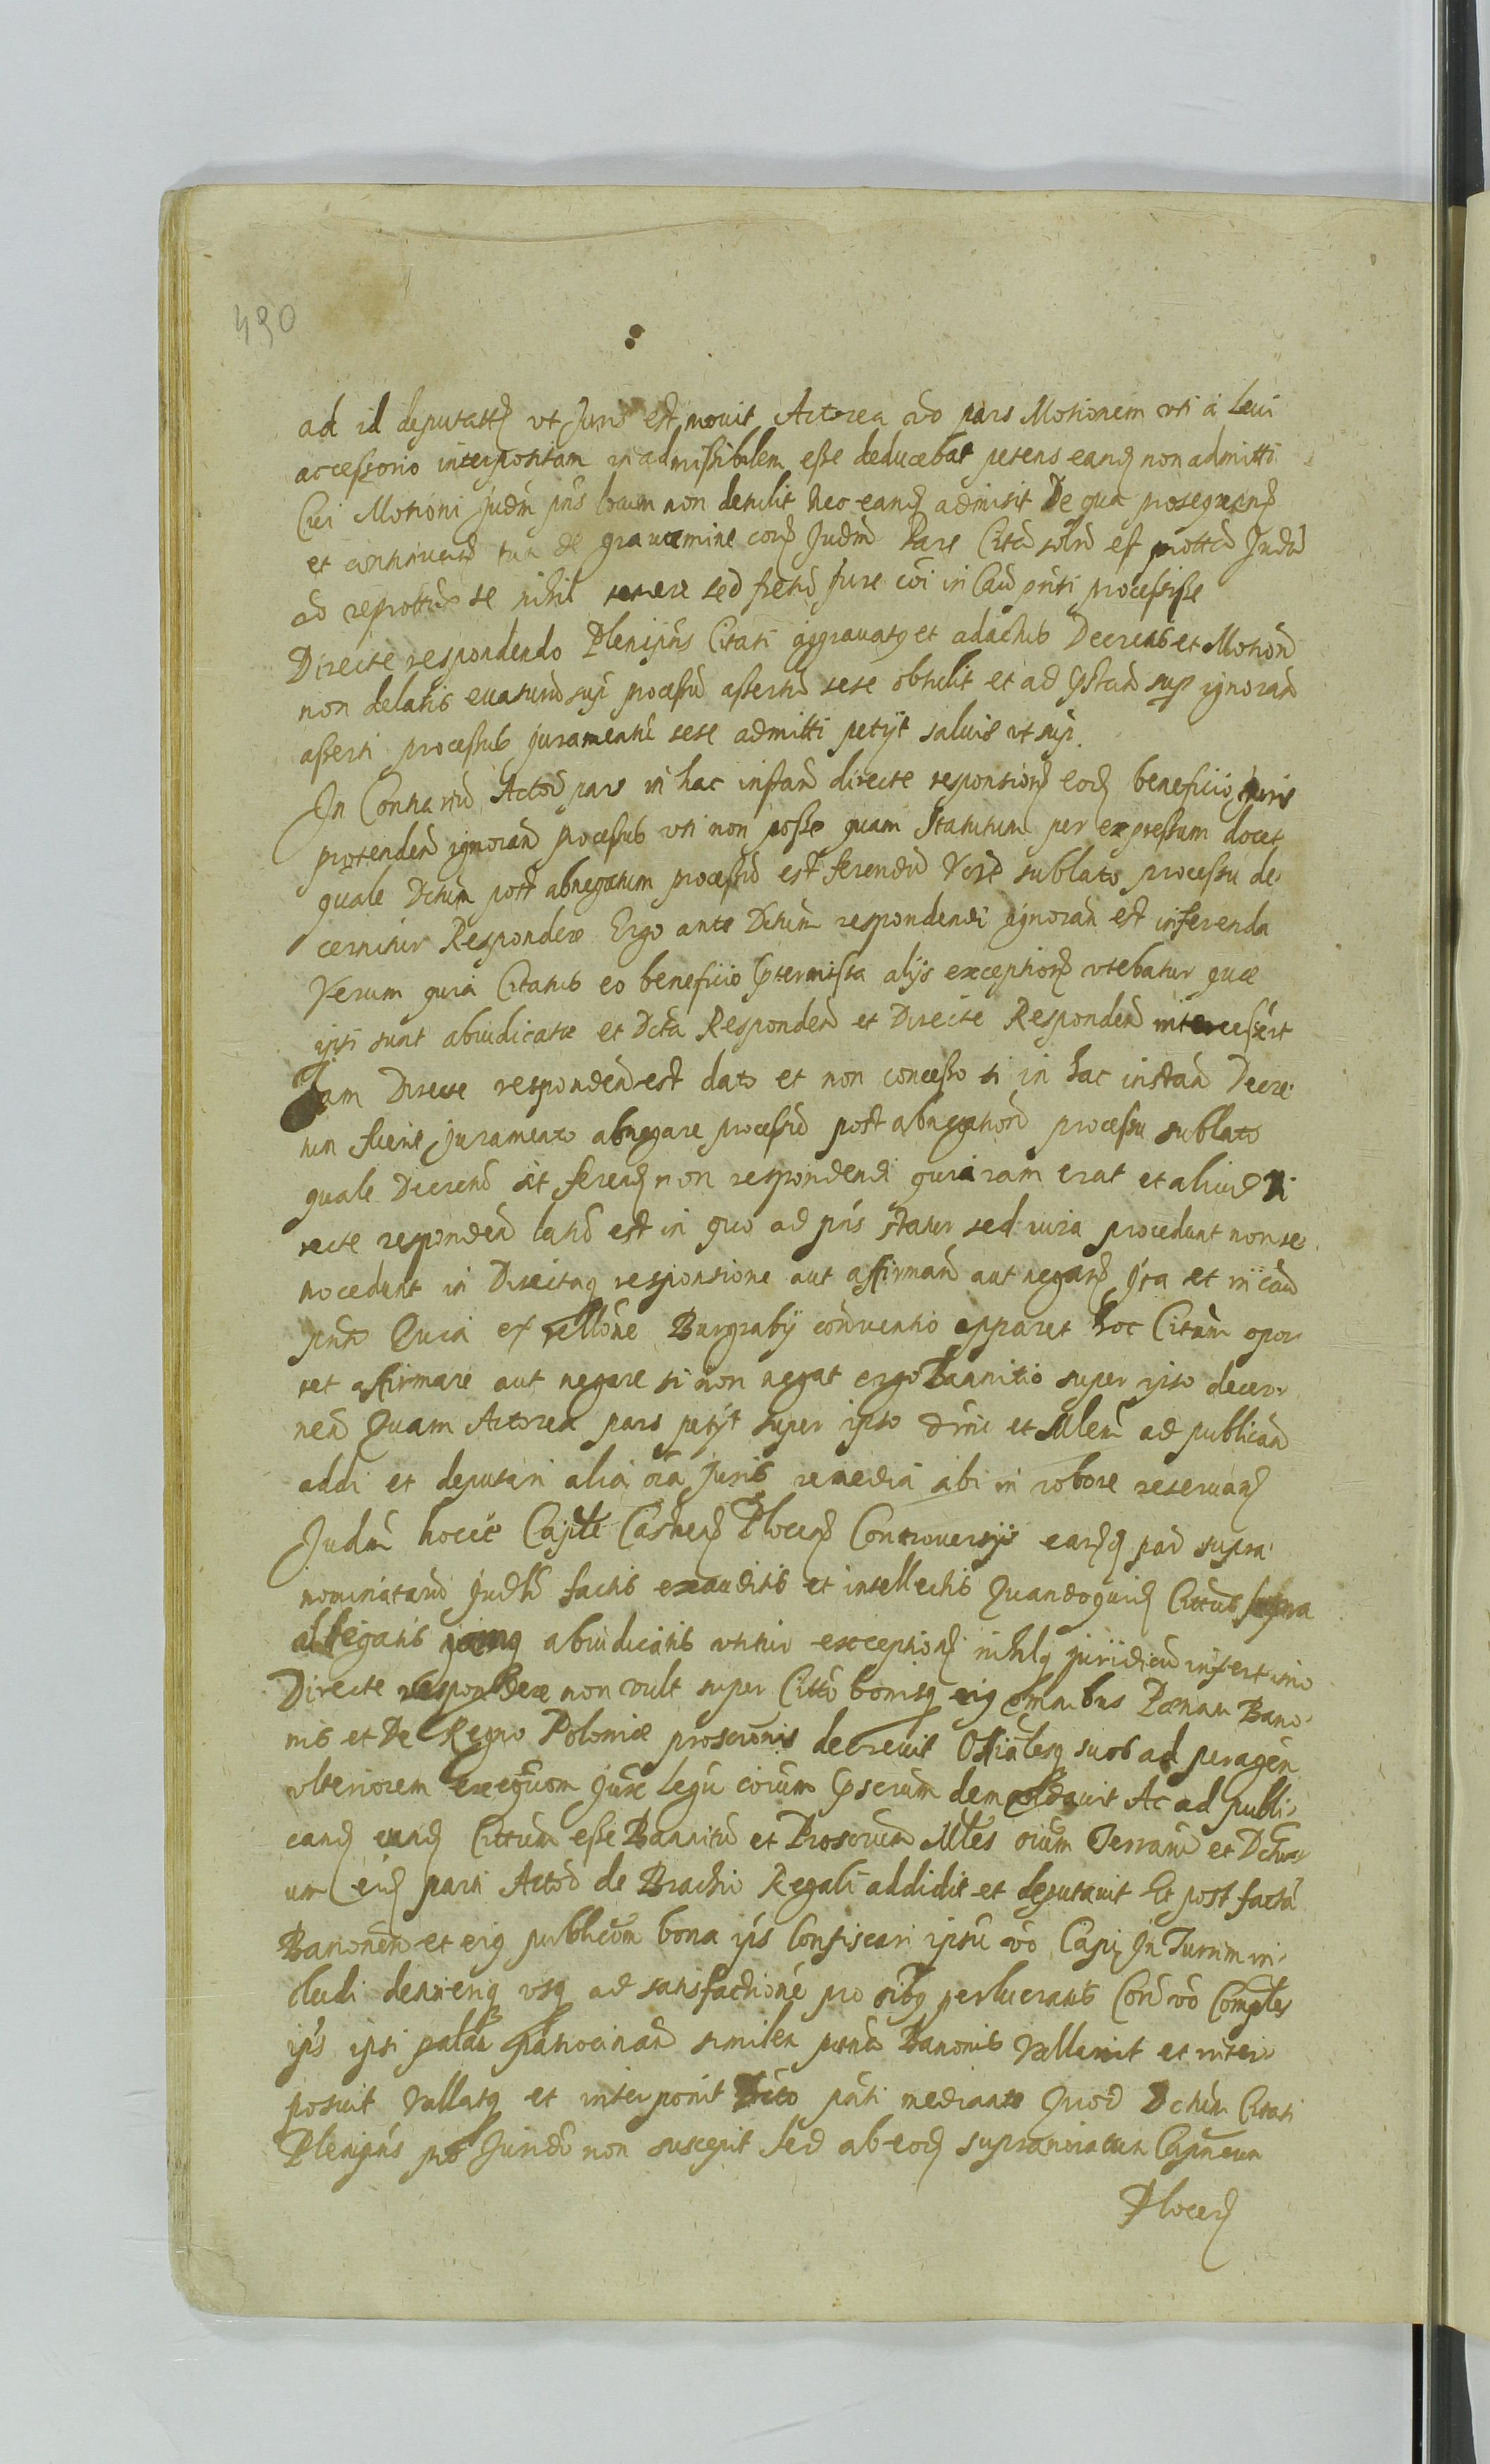 490
ad id deputatt ut Juris est movit Actorea vo pars Motionem uti a levi
accessorio interpositam inadmissibilem esse deducebat petens eand non admitti
Cui Motioni Judm pns locum non detulit nec eand admisit De qua prosequend
et continuand de gravamine cord Judm Pars Citd est Judm
vo se nihil temere sed fretum Jure coi in Cau pnti processisse
Directe respondendo Plenipns Citati aggravatq et adactus Decreto et Motiond
non delatis evasurum supr processum assertum sese obtulit et ad pstand sup ignorand
asserti processus juramentu sese admitti petijt salvis ut supr.
In Contrarium Actor pars in hac instand directe responsiond eod beneficio juris
protendend ignorand processus uti non posse quam Statutum per expressum docet
quale Dctum post abnegatum processum est ferendum sublato processu de-
cernitur Respondere Ergo ante Dctum respondendi ignoran est inferenda
Verum quia Citatus eo beneficio ptermissa alijs exceptiond utebatur quae
ipsi sunt abiudicatae et Dcta Respondend et Directe Respondend intercessert
Jam Directe respondend est dato et non concesso si in hac instand Decre-
tum fuerit juramento abnegare processum post abnegationd processu sublato
quale Decrend sit ferend non respondendi quia iam erat et aliud Di
recte respondend latum est in quo ad pns statur sed iura procedunt non re-
trocedunt in Directaq responsione aut affirmand aut negand Ita et in cau
pnti Quia ex rellone Burgrabij conventio apparet hoc Citum opor-
tet affirmare aut negare si non negat ergo Bannitio super ipso decer-
nend Quam Actorea pars petijt super ipso et Mlem ad publicand
addi et deputari alia oia Juris remedia sibi in robore reservand
Judm hocce Capitle Castren Plocen Controversijs eard par supra-
nominatard Judlr factis exauditis et intellectis Quandoquid Citus supra
allegatis abiudicatis utitur exceptiond nihilq juridicum infert imo
Directe respondere non vult super Citto bonisq eiq omnibus Poenam Bano-
nis et De Regno Poloniae proscronis decrevit Offialesq suos ad peragen
ulteriorem exequom Jure legu eorum pscrum demandavit Ac ad publi-
cand eund Cittum esse Bannitum et Proscrum Mltes oium Terraru et Dctuu
um eid parti Actor de Brachio Regali addidit et deputavit Et post factd
Banonem et eiq publicom bona ips Confiscari ipsu vo Capi In Turrim in-
cludi detineriq usq ad satisfactione pro oibq perlucratis Cord vo Complcs
ips ipsi palam patrocinand similem poena Banonis vallavit et inter-
posuit vallatq et interponit Dcto pnti mediante Quod Dctum Citati
Plenipns Jurido non suscepit Sed ab eod supranoiatum Capneum
Plocen